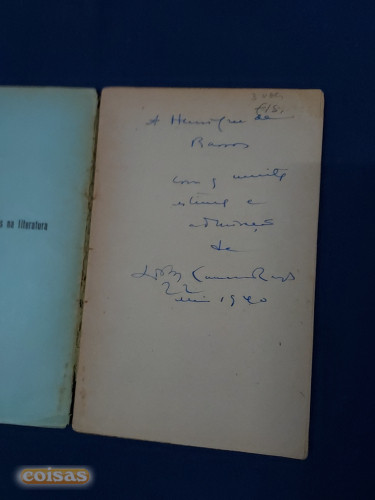 s na literatura
3 vols.
A Henrique de
Barros
com a muita
estima e
admiração
de
22
1940
coisas